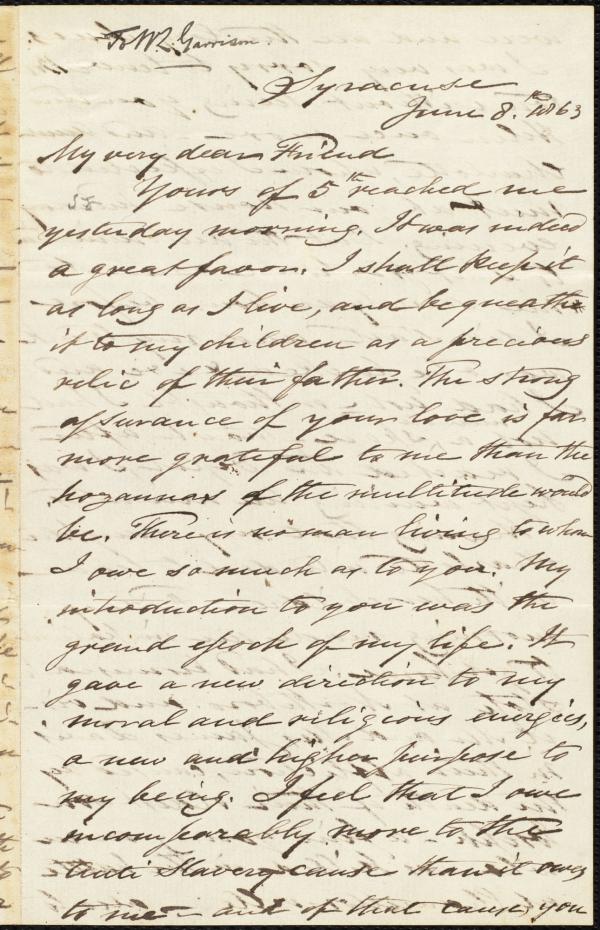 To W. L. Garrison
Syracuse
June 8.th 1863
My very dear Friend
Yours of 5th reached me
yesterday morning. It was indeed
a great favor. I shall keep it
as long as I live, and bequeathe
it to my children as a precious
relic of their father. The strong
assurance of your love is far
more grateful to me than the
hozannas of the multitude would
be. There is no man living to whom
I owe so much as to you. My
introduction to you was the
grand epoch of my life. It
gave a new direction to my
moral and religious energies,
a new and higher purpose to
my being. I feel that I owe
incomparably more to the
Anti Slavery cause than it owes
to me – and of that cause, you